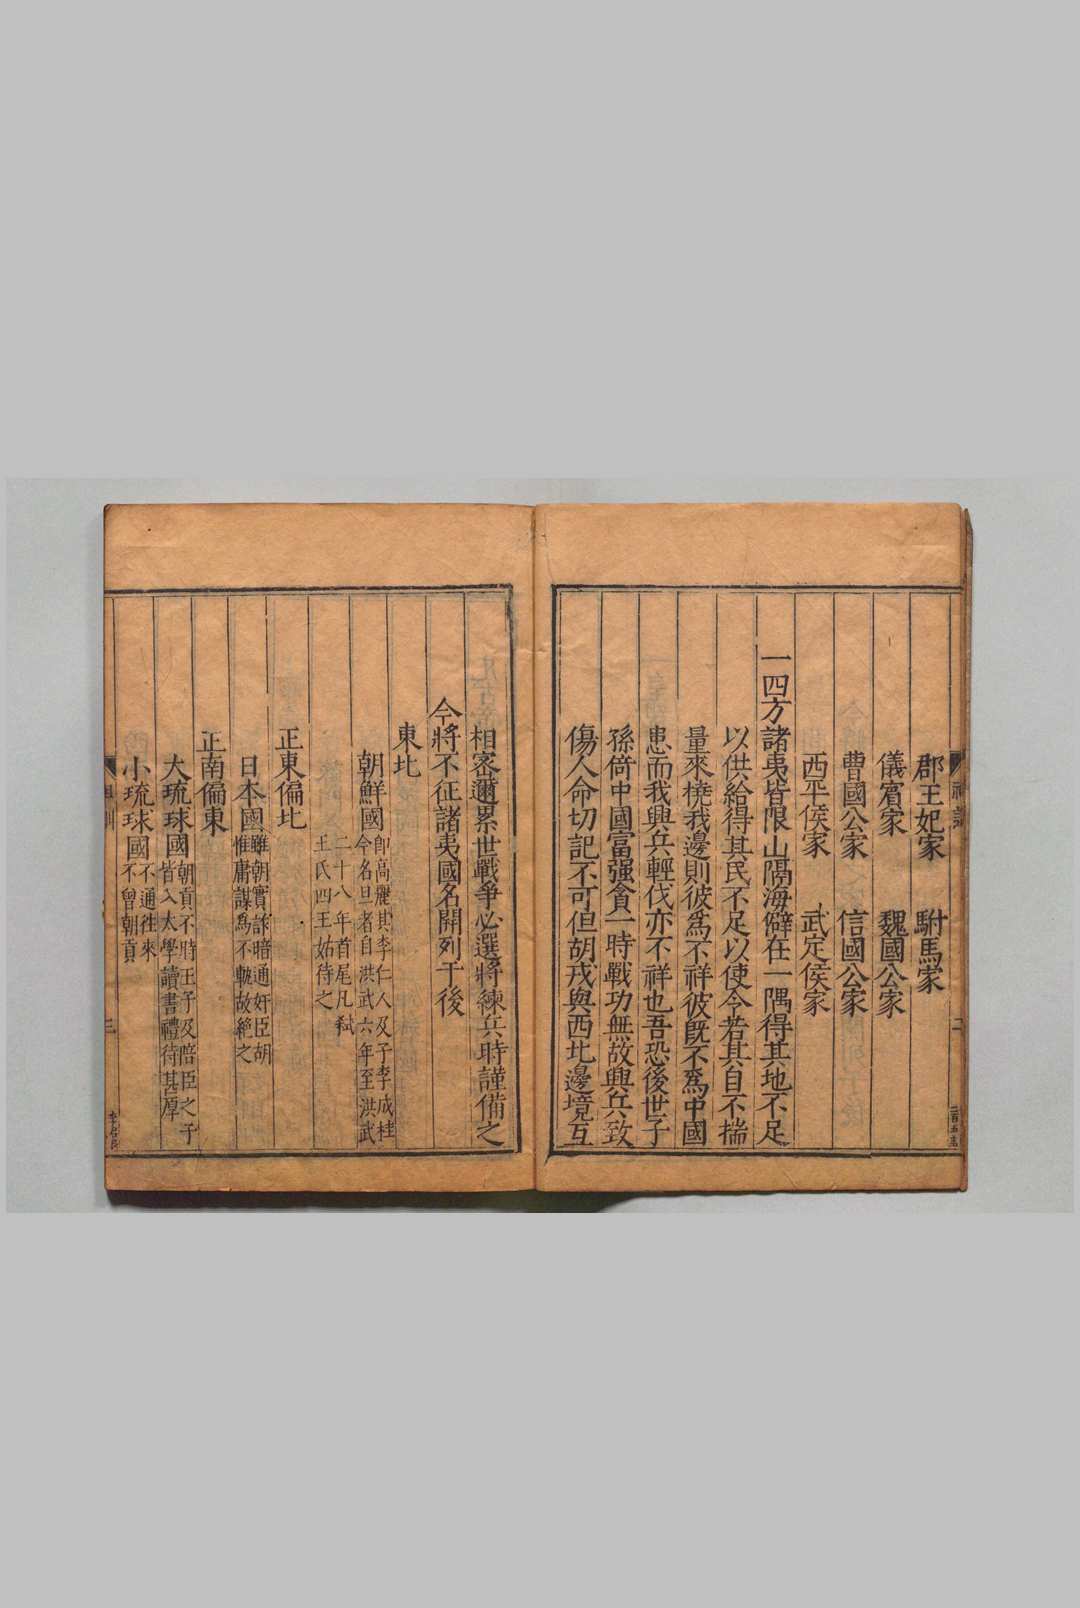 郡王妃家 駙馬家
儀賓家 魏國公家
曹國公家 信國公家
西平侯家 武定侯家
一四方諸夷皆限山隔海僻在一隅得其地不足
以供給得其民不足以使令若其自不揣
量來橈我邊則彼爲不祥彼旣不爲中國
患而我興兵輕伐亦不祥也吾恐後世子
孫倚中國富强貪一時戰功無故興兵致
傷人命切記不可但胡戎與西北邊境互
相密邇累世戰爭必選將練兵時謹備之
今將不征諸夷國名開列于後
東北
朝鮮國
即高麗其李仁人及子李成桂
今名旦者自洪武六年至洪武
二十八年首尾凡弒
王氏四王姑待之
正東偏北
日本國
雖朝實詐暗通奸臣胡
惟庸謀爲不軌故絶之
正南偏東
大琉球國
朝貢不時王子及陪臣之子
皆入太學讀書禮待甚厚
小琉球國
不通往來
不曾朝貢
祖訓
三